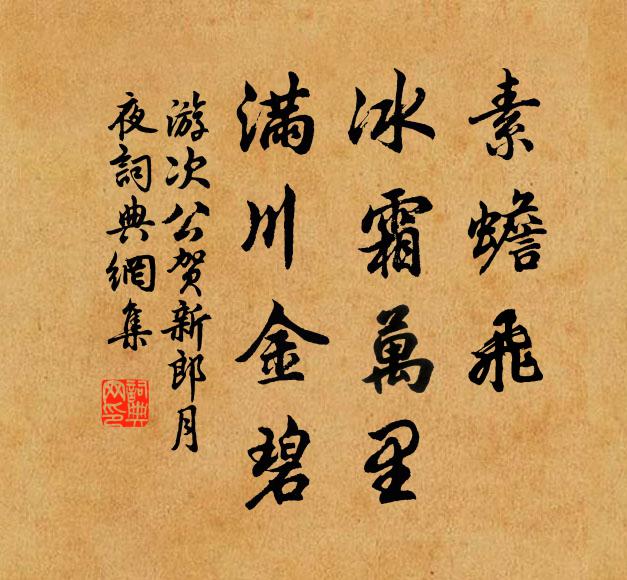 素蟾飛
冰霜萬里
滿川金碧
游次公賀新郎月
夜詞典網集
詞典
网印